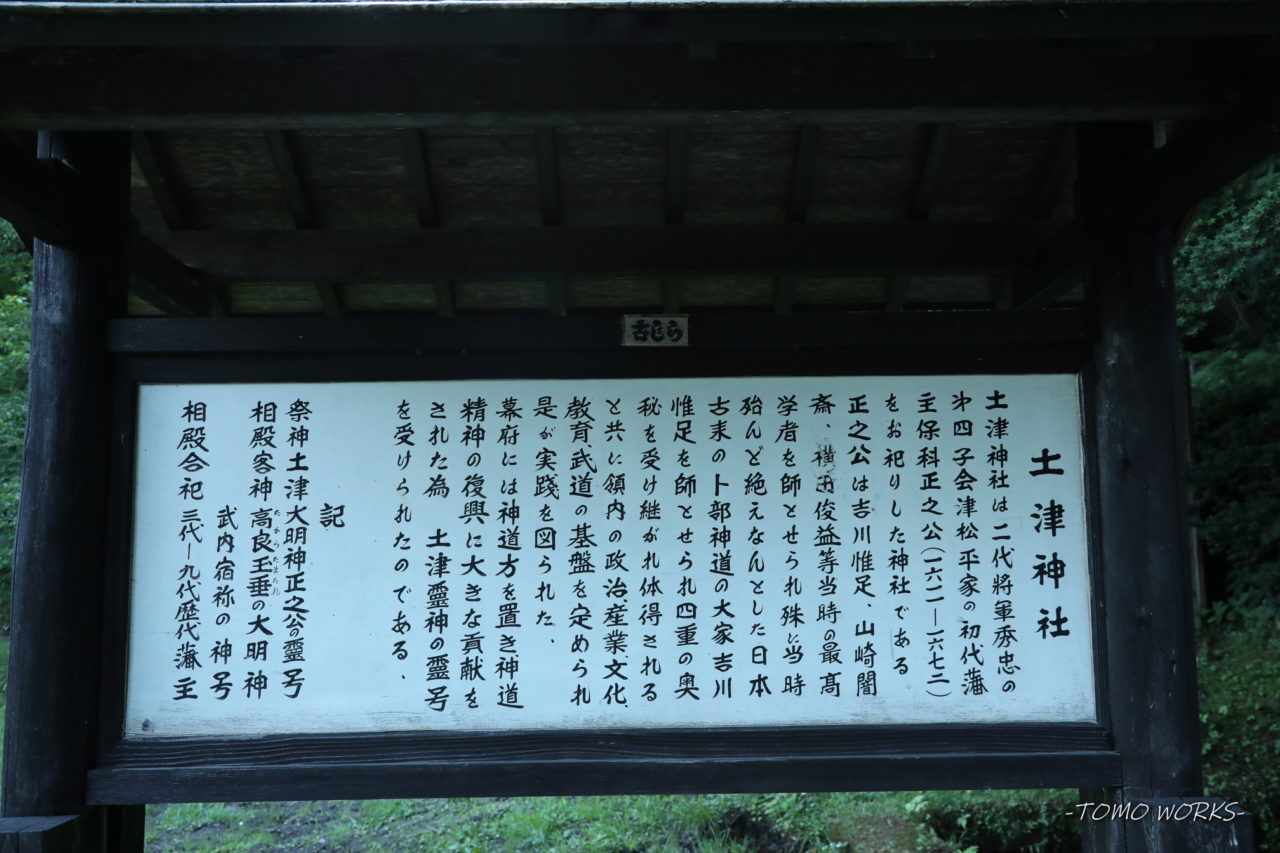 吉じら
土津神社
土津神社は二代将軍秀忠の
第四子会津松平家の初代藩
主保科正之公(一六一一―一六七二)
をお祀りした神社である
正之公は吉川惟足、山崎闇
斎、横田俊益等当時の最高
学者を師とせられ殊に当時
殆んど絶えなんとした日本
古来の卜部神道の大家吉川
惟足を師とせられ四重の奥
秘を受け継がれ体得される
と共に領内の政治、産業、文化、
教育、武道の基盤を定められ
是が実践を図られた、
幕府には神道方を置き神道
精神の復興に大きな貢献を
された為 土津霊神の霊号
を受けられたのである.
記
祭神土津大明神正之公の霊号
相殿客神高良玉垂の大明神
たからたまたれ
武内宿祢の神号
相殿合祀三代―九代歴代藩主
-TOMO WORKS-